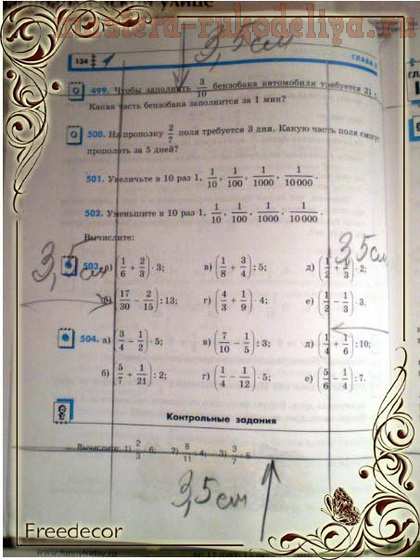 mastera-rukodeliya.ru
3,5см
134
ГЛАВА
499. Чтобы заполнить 3/10 бензобака автомобиля требуется 21
Какая часть бензобака заполнится за 1 мин?
500. На прополку 2/7 поля требуется 3 дня. Какую часть поля
прополать за 5 дней?
501. Увеличьте в 10 раз 1, 1/10, 1/100, 1/1000, 1/10 000.
502. Уменьшите в 10 раз 1, 1/10, 1/100, 1/1000, 1/10 000.
Вычислите:
3,5см 3,5см
503. а) (1/6 + 2/3) · 3; в) (1/8 + 3/4) : 5; д) (1/2 + 1/3) · 2;
б) (17/30 − 2/15) : 13; г) (4/3 + 1/9) · 4; е) (1/2 − 1/3) · 3.
504. а) (3/4 − 1/2) · 5; в) (7/10 − 1/5) : 3; д) (1/4 + 1/6) : 10;
б) (5/7 + 1/21) : 2; г) (1/4 − 1/12) · 5; е) (5/6 − 1/4) : 7.
Контрольные задания
Вычислите: 1) 2/3 · 6; 2) 8/11 : 4; 3) 3/7 · 5
3,5см
Freedecor